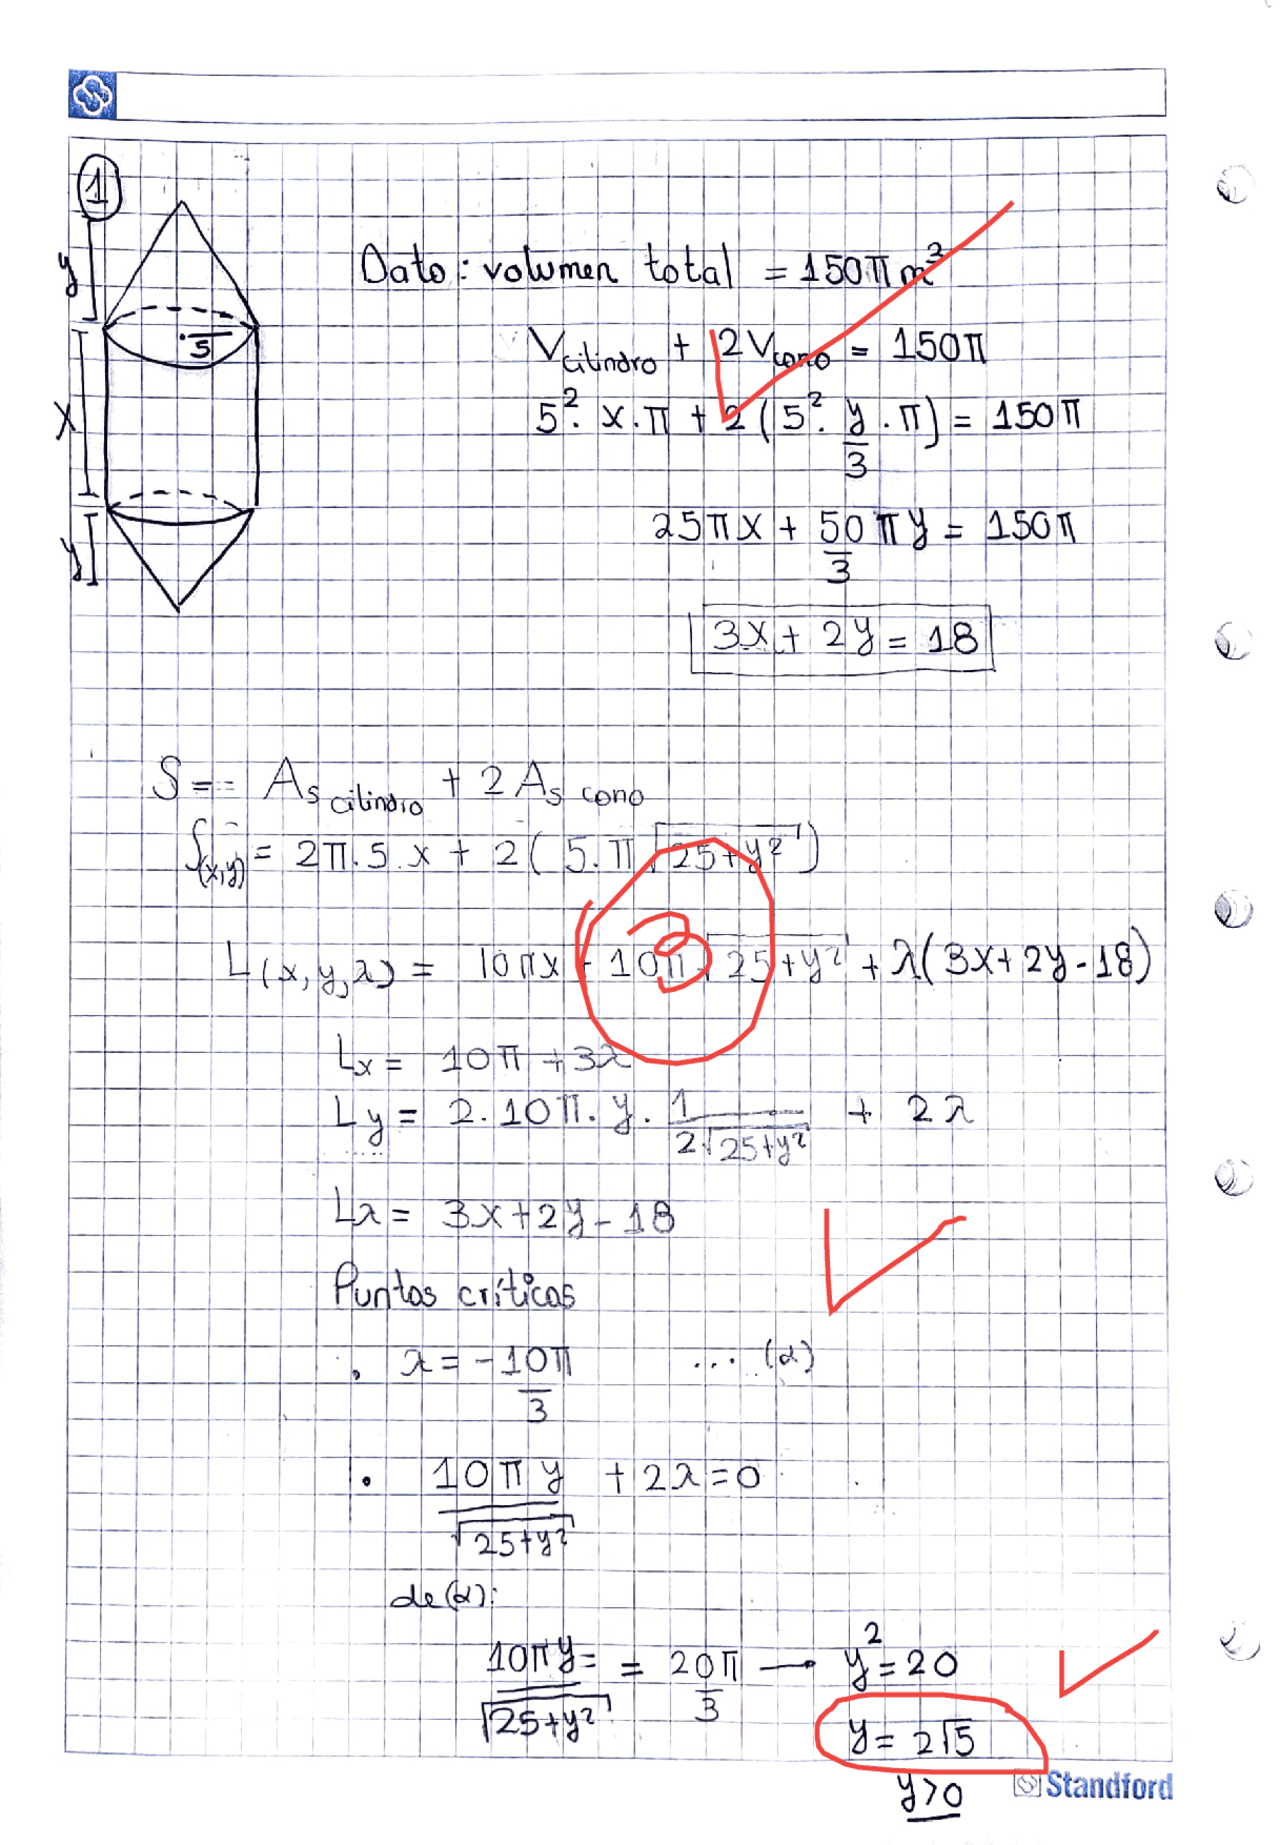 1
y
5
x
y
Dato: volumen total = 150π m³
V cilindro + 2V cono = 150π
5². x.π + 2(5². y/3 . π) = 150π
25πx + 50/3 πy = 150π
3x + 2y = 18
S = As cilindro + 2 As cono
S(x,y) = 2π.5.x + 2(5.π √(25+y²))
L(x,y,λ) = 10πx + 10π √(25+y²) + λ(3x+2y-18)
3
Lx = 10π + 3λ
Ly = 2.10π.y. 1/(2√(25+y²)) + 2λ
Lλ = 3x+2y-18
Puntos críticos
. λ = -10π/3 ... (α)
. 10πy/√(25+y²) + 2λ=0
de (α):
10πy/√(25+y²) = = 20π/3 → y²=20
y = 2√5
y>0
Standford